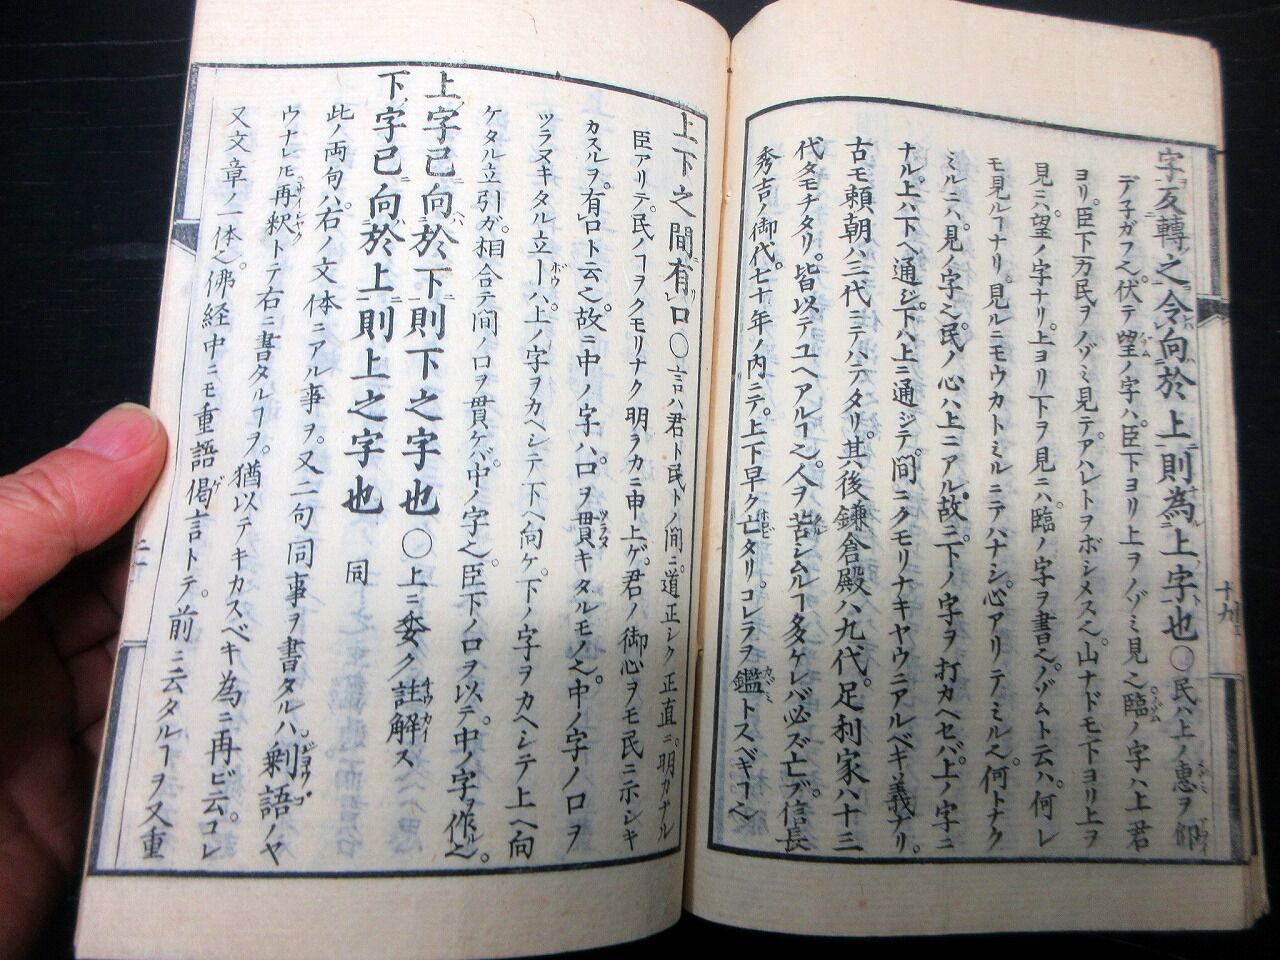 字反轉之令向於上則為上字也〇民ハ上ノ恵ヲ仰
デ子ガフ之伏テ望ノ字ハ臣下ヨリ上ヲノゾミ見之臨ノ字ハ上君
ヨリ臣下万民ヲノゾミ見テアハレトヲボシメス之山ナドモ下ヨリ上ヲ
見ニハ望ノ字ナリ上ヨリ下ヲ見ニハ臨ノ字ヲ書之ノゾムト云ハ何レ
モ見ルヿナリ見ルニモウカトミルニアハナシ心アリテミル之何トナク
ミルニハ見ノ字之民ノ心ハ上ニアル故ニ下ノ字ヲ打カヘセバ上ノ字ニ
ナル上ハ下ヘ通ジ下ハ上ニ通ジテ間ニクモリナキヤウニアルベキ義ナリ
古モ頼朝ハ三代ニテハテタリ其後鎌倉殿ハ九代足利家ハ十三
代タモチタリ皆以テユヘアルヿ之人ヲ苦シムルヿ多ケレバ必ズ亡ブ信長
秀吉ノ御代七十年ノ内ニテ上下早ク亡タリコレラヲ鑑トスベキヿ之
十九
上下之間有口〇言ハ君ト民トノ間ニ道正シク正直ニ明カナル
臣アリテ民ノヿヲクモリナク明ヲカニ申上ゲ君ノ御心ヲモ民ニ示シキ
カスルヲ有口ト云之故ニ中ノ字ハ口ヲ貫キタルモノ之中ノ字ノ口ヲ
ツラヌキタル立｜ハ上ノ字ヲカヘシテ下ヘ向ケ下ノ字ヲカヘシテ上ヘ向
ケタル立引ガ相合テ間ノ口ヲ貫ケバ中ノ字之臣下ノ口ヲ以テ中ノ字ヲ作之
上字已向於下則下之字也〇上ニ委ク註解ス
下字已向於上則上之字也 同
此ノ両句ハ右ノ文体ニアル事ヲ又二句同事ヲ書タルハ剰語ノヤ
ウナレ𪜈再釈トテ右ニ書タルヿヲ猶以テキカスベキ為ニ再ビ云コレ
又文章ノ一体之佛経中ニモ重語偈言トテ前ニ云タルヿヲ又重